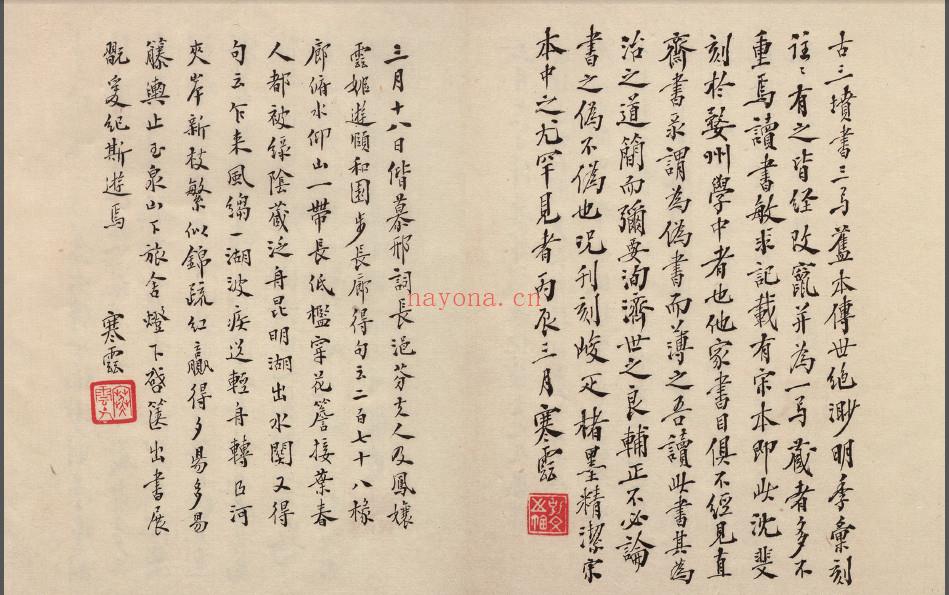 古三墳書三弓舊本傳世絕尠明季彙刻
往々有之皆經改竄并為一弓藏者多不
重焉讀書敏求記載有宋本即此沈斐
刻於婺州學中者也他家書目俱不經見直
齋書录謂為偽書而薄之吾讀此書其為
治之道簡而彌要洵濟世之良輔正不必論
書之偽不偽也況刊刻峻疋楮墨精潔宋
本中之尤罕見者丙辰三月寒雲
三月十八日偕慕邢詞長浥芬夫人及鳳孃
雲姬遊頤和園步長廊得句云二百七十八椽
廊俯水仰山一帶長低檻穿花簷接葉春
人都被綠陰藏泛舟昆明湖出水関又得
句云乍来風縐一湖波疾送輕舟轉河
夾岸新枝繁似錦疏紅贏得夕昜多易
籐輿止玉泉山下旅舍燈下啓篋出書展
翫爰紀斯遊焉
寒雲
hayona.cn